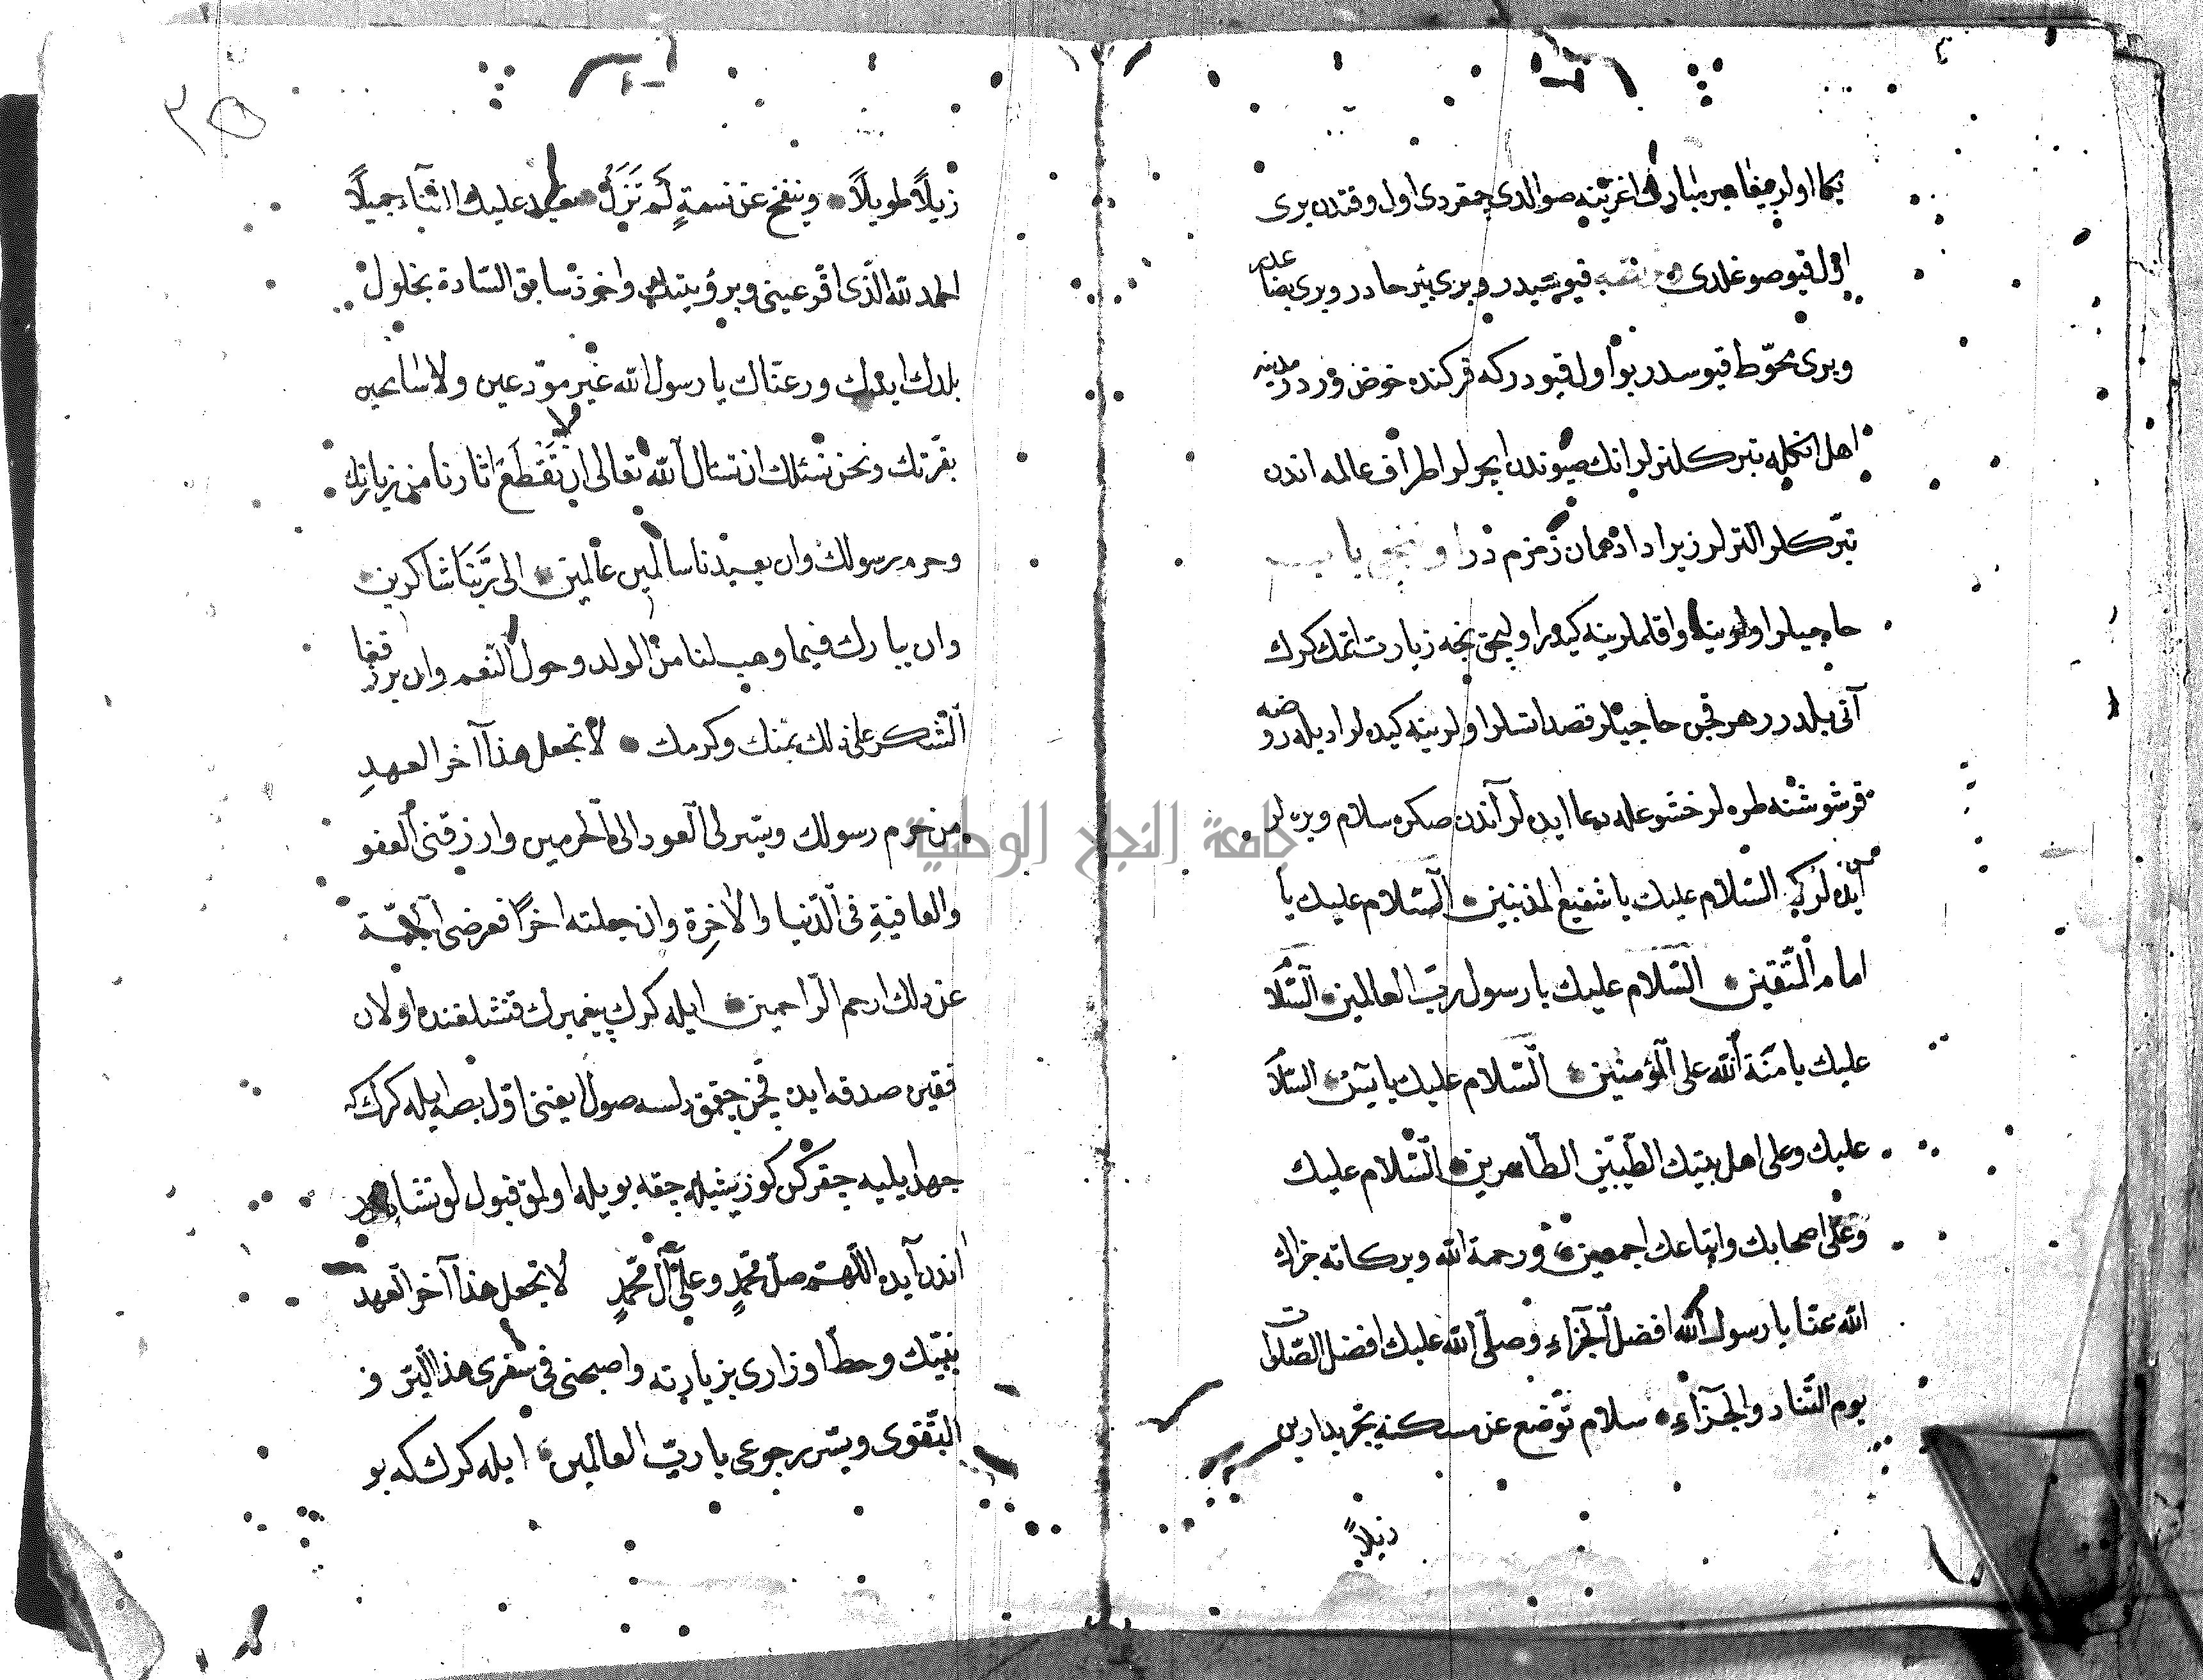 اول مبارك اغزينه صوالدى چقردى اول وقتدن برى
اول قيو صو غلدى قيوسيدر وبرى بئر حا در وبرى بضا
عدر
وبرى محوّط قيوسدر بو اول قيودر كه قركنده خوض وردر مدينه
اهل انكله تبركلنرلر انك صيوندن ايچرلر اطراف عالمه اندن
تبّركلر التر لر زيرا دادهمان زمزم در
حاجيلر اولرينه واقلملرينه كيدر اوليجق نجه زيارت اتمك كرك
آنى بلدرر هرقچن حاجيلر قصد اتسلر اولرينه كيده لر اديله رو
ضه
قرشوشنه طره لر خشوعله دعا ايده لر آندن صكره سلام ويره لر
ايده لركه السّلام عليك يا شفيع المذنبين السّلام عليك يا
امام المتّقين السّلام عليك يا رسول ربّ العالمين السّلا
عليك يا منّة الله على المؤمنين السّلام عليك يا يسٓ السّلا
عليك وعلى اهل بيتك الطّيبين الطّاهرين السّلام عليك
وعلى اصحابك واتباعك اجمعين ورحمة الله وبركاته جزاك
الله عنّا يا رسول الله افضل الجزاء وصلّى الله عليك افضل الصّلوات
يوم التّناد والجزاء سلام توّضع عن مسكنه بحر يدارين
ذيلاً
٣٥
ذيلاً طويلاً وننفخ عن نسمةٍ لم تزل عليك الثناء جميلاً
الحمد لله الّذى اقرّ عينى وبرؤيتك واخوذ سابق السّادة بحلول
بلدك ورعتاك يا رسول الله غير مودّعين ولا
بفرّتك ونحن نسئلك ان تسال الله تعالى ان لا تقطع اثارنا من زيارتك
وحرم رسولك وان يعيدنا سالمين عالمين الى ربّنا شاكرين
وان يبارك فيما وهب لنا من الولد وحول النّعم وان يرزقنا
الشّكر على ذلك بمنك وكرمك لا تجعل هذا آخر العهدِ
من حرم رسولك ويسر لى العود الى الحرمين وارزقنى العفو
والعافيةِ فى الدّنيا والاخرة وان جعلته اخرًا فعرضى الجنّة
عن ذلك ارحم الرّاحمين ايله كرك پيغمبرك قتشلغنده اولان
فقيره صدقه ايده قچن چقمق دلسه صول يعنى اوّل بصه ايله كرك كه
جهد ايليه چقركن كوز ياشيله چقه بويله اولمق قبول لو نشانيدر
اندن آيده اللّهم صلّ محمّدٍ وعلى آل محمّدٍ لا تجعل هذا آخر العهد
بنبيّك وحطّ اوزارى بزيارته واصبحنى فى سفرى هذا البّر و
التّقوى ويسّر رجوعى يا ربّ العالمين ايله كرك كه بو
جامعة النجاح الوطنية